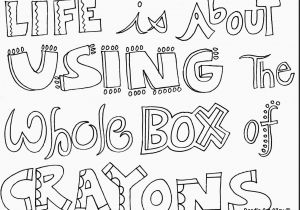 LIFE is About
USING The
Whole BOX of
CRAYONS